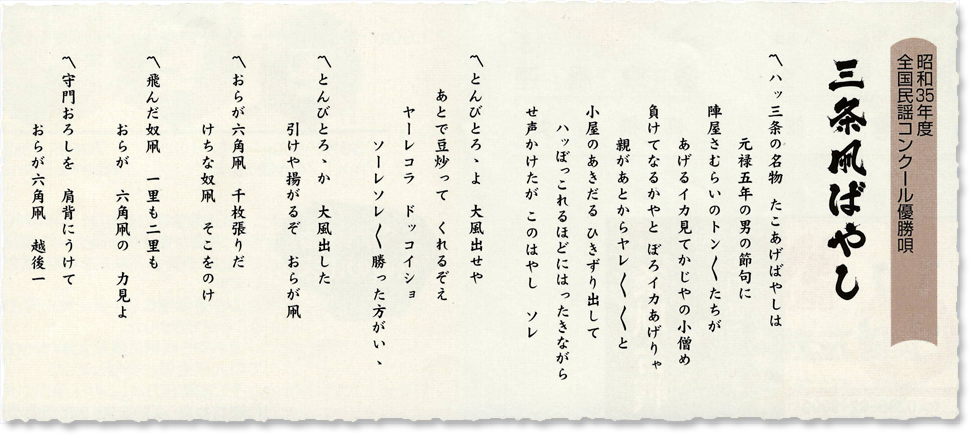 昭和35年度
全国民謡コンクール優勝唄
三条凧ばやし
〽ハッ三条の名物 たこあげばやしは
元禄五年の男の節句に
陣屋さむらいのトン〳〵たちが
あげるイカ見てかじやの小僧め
負けてなるかやと ぼろイカあげりゃ
親があとからヤレ〳〵〳〵と
小屋のあきだる ひきずり出して
ハッぽっこれるほどにはったきながら
せ声かけたが このはやし ソレ
〽とんびとろゝよ 大風出せや
あとで豆炒って くれるぞえ
ヤーレコラ ドッコイショ
ソーレソレ〳〵勝った方がいゝ
〽とんびとろゝか 大風出した
引けや揚がるぞ おらが凧
〽おらが六角凧 千枚張りだ
けちな奴凧 そこをのけ
〽飛んだ奴凧 一里も二里も
おらが 六角凧の 力見よ
〽守門おろしを 肩背にうけて
おらが六角凧 越後一